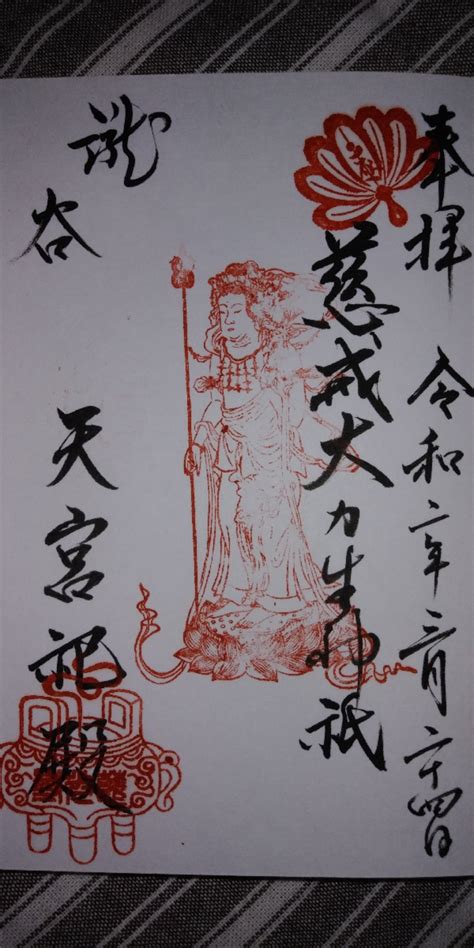 奉拝 令和二年三月二十四日
慈戒大力生神祇
瀧谷 天宮祀殿